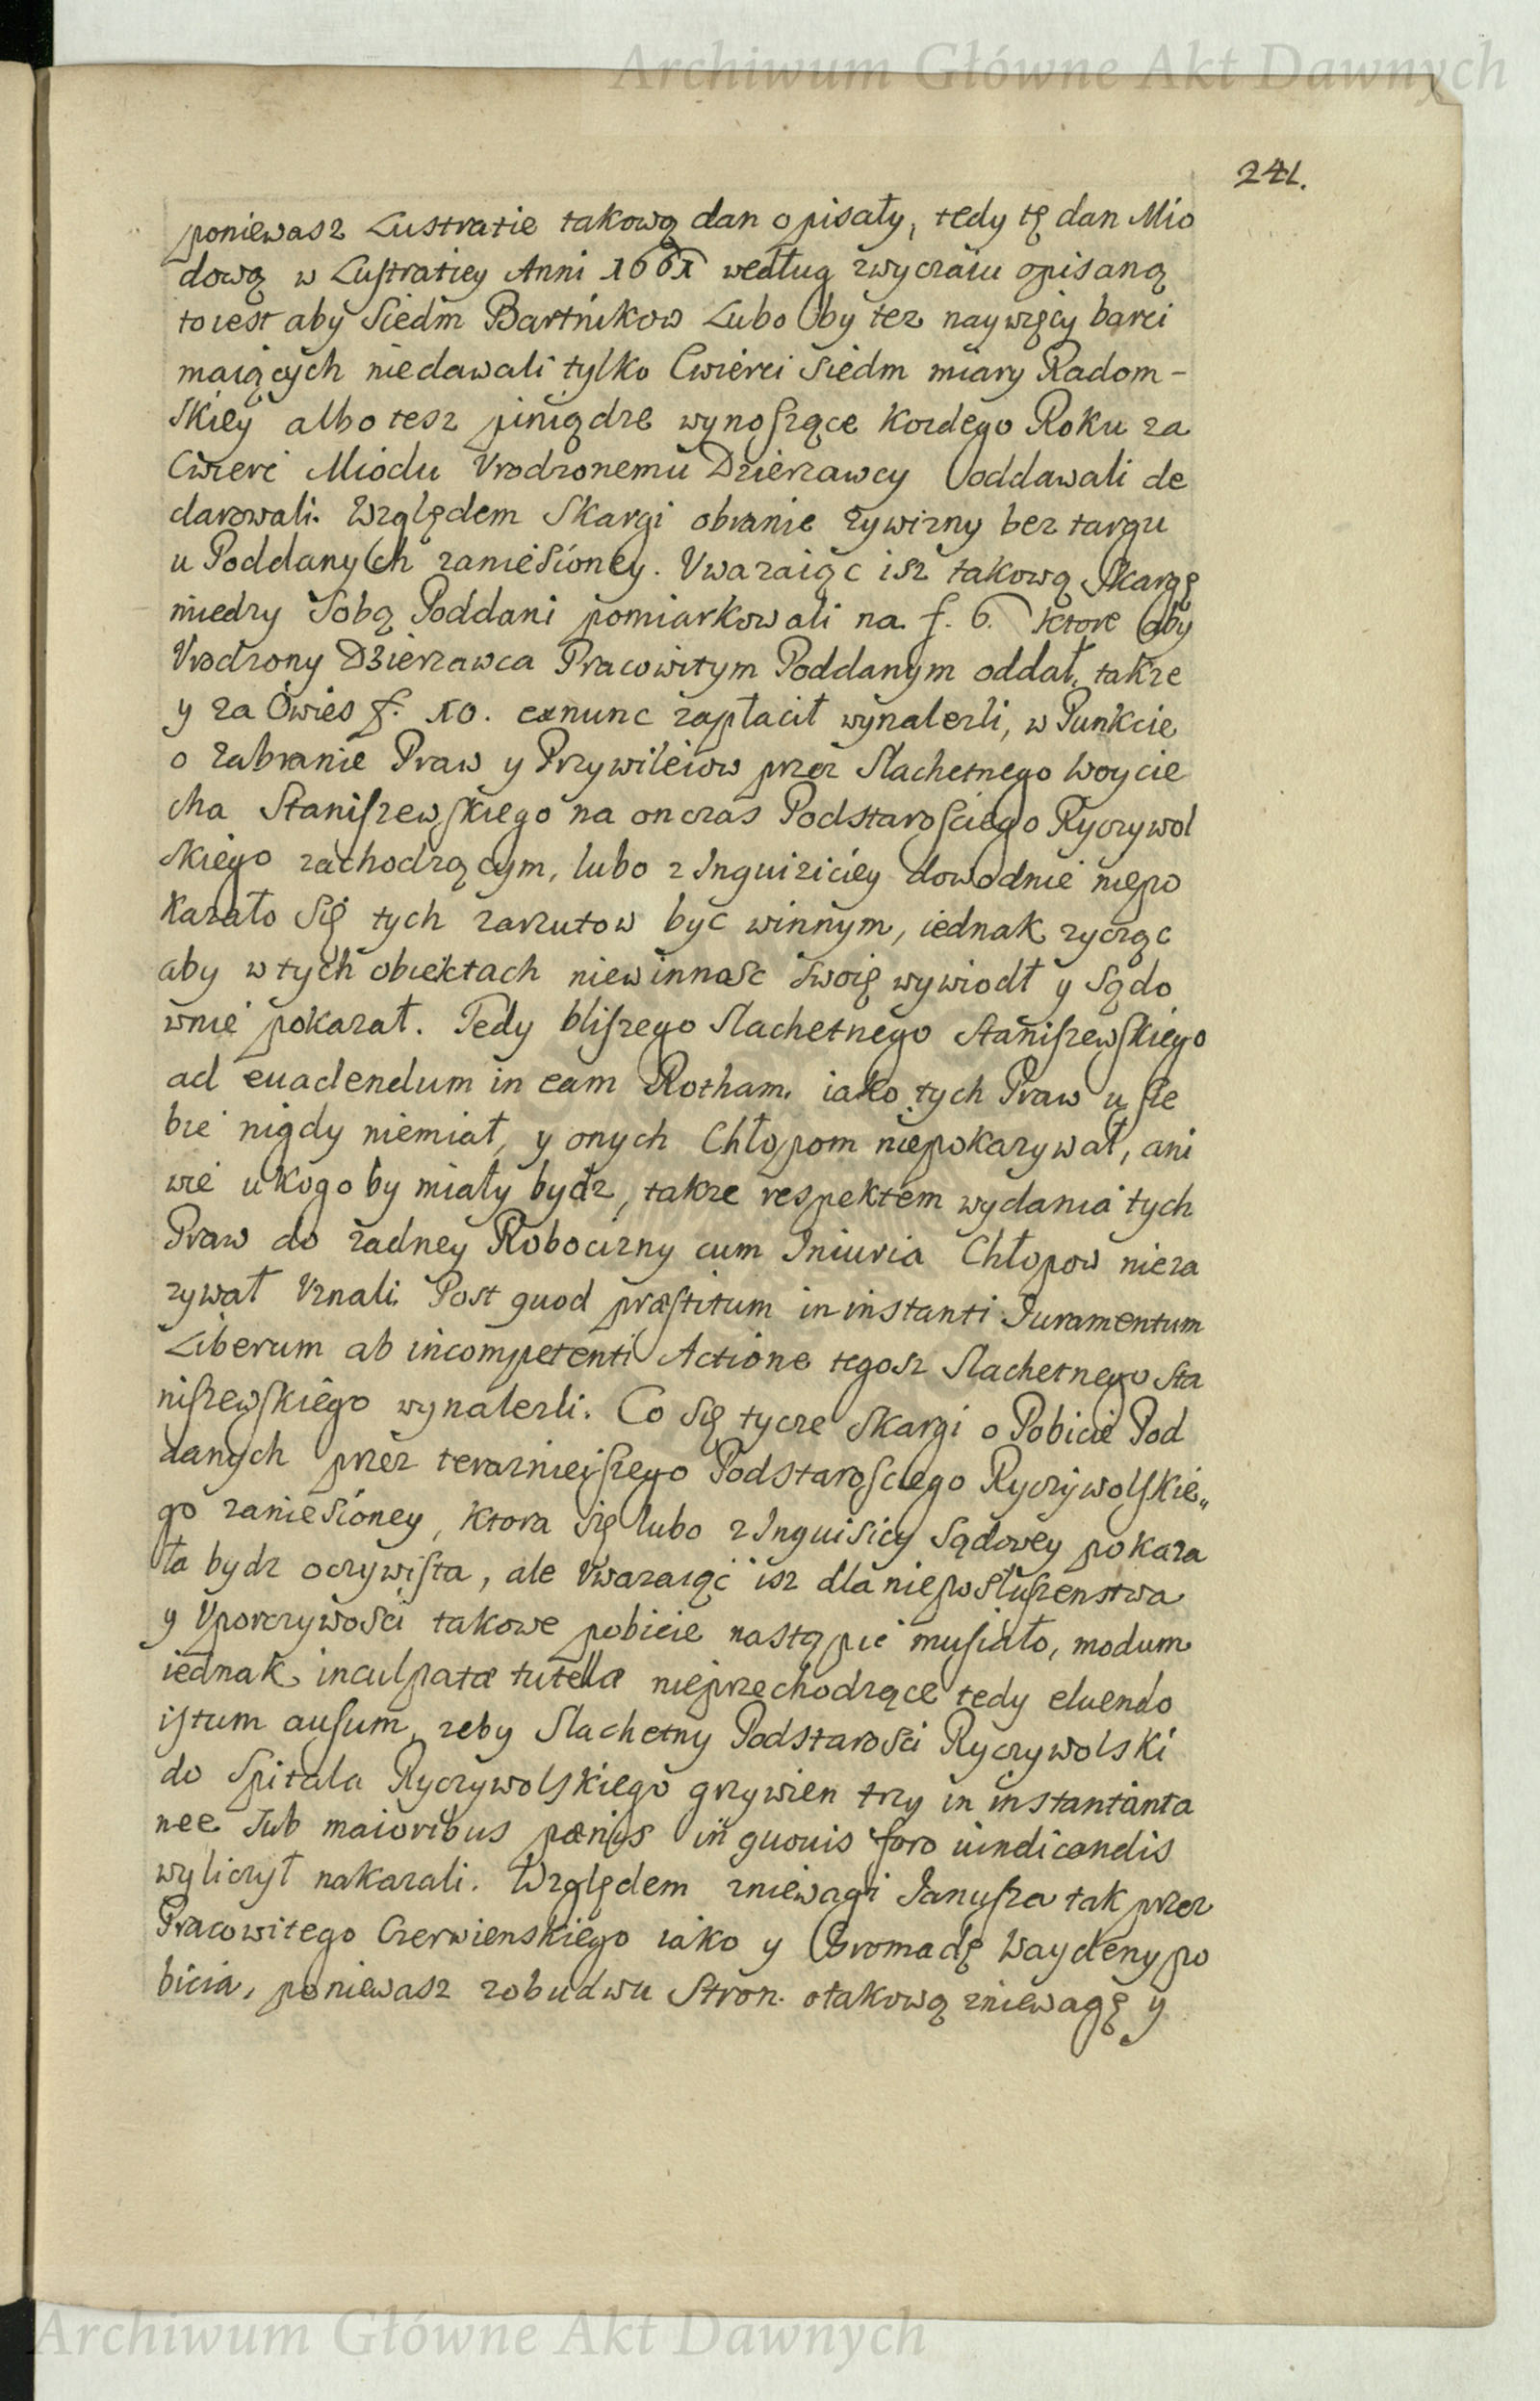 Archiwum Główne Akt Dawnych
241.
poniewasz Lustratie takową dan opisały, tedy tę dan Mio
dową w Lustratiey Anni 1661 według zwyczaiu opisaną
toiest aby Siedm Bartnikow Lubo by tez naywięcy barci
maiących niedawali tylko Cwierci Siedm miary Radom-
skiey albo tesz piniądze wynoszące kozdego Roku za
Cwierć Miodu Vrodzonemu Dzierzawcy oddawali de
clarowali. Względem Skargi obranie zywizny bez targu
u Poddanych zaniesioney. Vwazaiąc isz takową Skargę
miedzy Sobą Poddani pomiarkowali na f. 6. ktore aby
Vrodzony Dzierzawca Pracowitym Poddanym oddał, takze
y za Owies f. 10. exnunc zapłacił wynalezli, w Punkcie
o Zabranie Praw y Przywileiow przez Slachetnego Woycie
cha Staniszewskiego na on czas Podstarosciego Ryczywol
skiego zachodzącym, lubo z Inquiziciey dowodnie niepo
kazało Się tych zarzutow być winnym, iednak zycząc
aby w tych obiektach niewinnosc swoię wywiodł y Sądo
wnie pokazał. Tedy bliszego Slachetnego Staniszewskiego
ad euadendum in eam Rotham. iako tych Praw u sie
bie nigdy niemiał, y onych Chłopom niepokazywał, ani
wie u kogo by miały bydz, takze respektem wydania tych
Praw do zadney Robocizny cum Iniuria Chłopow nieza
zywał Vznali. Post quod præstitum in instanti Iuramentum
Liberum ab incompetenti Actione tegosz Slachetnego Sta
niszewskiego wynalezli. Co Się tycze Skargi o Pobicie Pod
danych przez teraznieiszego Podstarosciego Ryczywolskie„
go zaniesioney, ktora się lubo z Inquisicy Sądowey pokaza
ła bydz oczywista, ale Vwazaiąc isz dla nieposłuszenstwa
y Vporczywości takowe pobicie nastąpić musiało, modum
iednak inculpatæ tutellæ nieprzechodzące tedy eluendo
istum ausum, zeby Slachetny Podstarości Ryczywolski
do Spitala Ryczywolskiego grzywien trzy in instantanta
nee Sub maioribus pænis in quouis foro uindicandis
wyliczył nakazali. Względem zniewagi Janusza tak przez
Pracowitego Czerwienskiego iako y Gromadę Waydeny po
bicia, poniewasz zobudwu Stron. otakową zniewagę y
Archiwum Główne Akt Dawnych